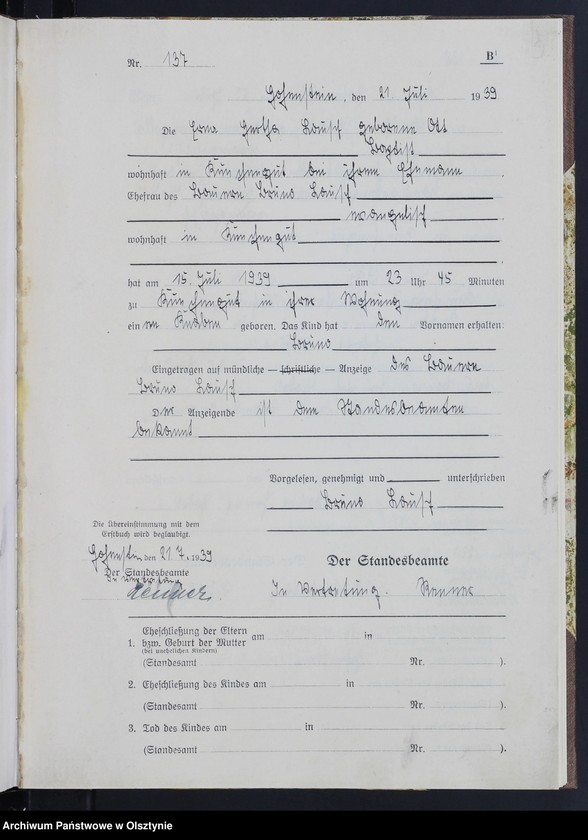 Nr. 137
B¹
Hohenstein, den 21. Juli 1939
Die Erna Hertha geborene Ott
Baptist
wohnhaft in bei ihrem Ehemann
Ehefrau des Bauern Bruno
evangelisch
wohnhaft in
hat am 15. Juli 1939 um 23 Uhr 45 Minuten
zu in ihrer Wohnung
einen Knaben geboren. Das Kind hat den Vornamen erhalten:
Bruno
Eingetragen auf mündliche — schriftliche — Anzeige des Bauern
Bruno
Der Anzeigende ist dem Standesbeamten
bekannt
Vorgelesen, genehmigt und unterschrieben
Bruno
Die Übereinstimmung mit dem
Erstbuch wird beglaubigt.
Hohenstein, den 21.7.1939
Der Standesbeamte
In Vertretung
Der Standesbeamte
In Vertretung. Renner
1. Eheschließung der Eltern
bzw. Geburt der Mutter am in
(bei unehelichen Kindern)
(Standesamt Nr. ).
2. Eheschließung des Kindes am in
(Standesamt Nr. ).
3. Tod des Kindes am in
(Standesamt Nr. ).
Archiwum Państwowe w Olsztynie